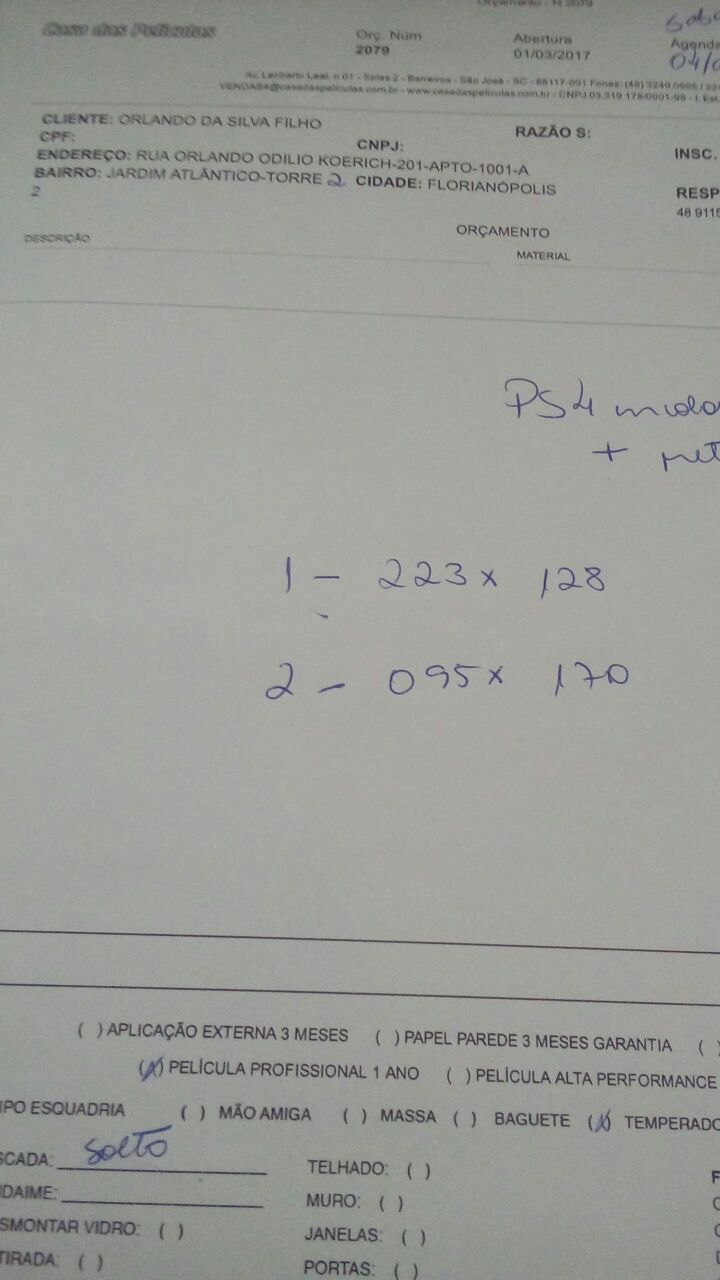 Orçamento - N 2079
Casa das Películas
Orç. Núm
2079
Abertura
01/03/2017
Agenda
04/0
Av. Leoberto Leal, n 01 - Salas 2 - Barreiros - São José - SC - 88117-001 Fones: (48) 3240.0606 / 324
VENDAS4@casadaspeliculas.com.br - www.casadaspeliculas.com.br - CNPJ 03.319.178/0001-98 - I. Est
CLIENTE: ORLANDO DA SILVA FILHO
CPF:
CNPJ:
RAZÃO S:
INSC.
ENDEREÇO: RUA ORLANDO ODILIO KOERICH-201-APTO-1001-A
BAIRRO: JARDIM ATLÂNTICO-TORRE 2 CIDADE: FLORIANÓPOLIS
2
RESP
48 9115
ORÇAMENTO
DESCRIÇÃO
MATERIAL
PS4
+
1 - 223 x 128
2 - 095 x 170
( ) APLICAÇÃO EXTERNA 3 MESES ( ) PAPEL PAREDE 3 MESES GARANTIA (
(X) PELÍCULA PROFISSIONAL 1 ANO ( ) PELÍCULA ALTA PERFORMANCE
IPO ESQUADRIA ( ) MÃO AMIGA ( ) MASSA ( ) BAGUETE (X) TEMPERADO
SCADA: solto
TELHADO: ( )
NDAIME:
MURO: ( )
SMONTAR VIDRO: ( )
JANELAS: ( )
TIRADA: ( )
PORTAS: ( )